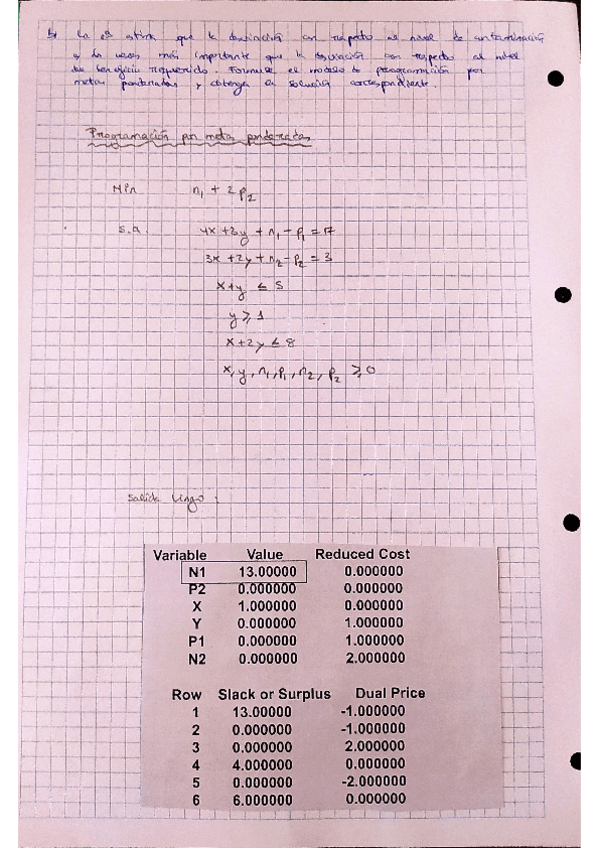 que la desviación con respecto al nivel de contaminación
es dos veces más importante que la desviación con respecto al nivel
de beneficio requerido. Formule el modelo de programación por
metas ponderadas y obtenga la solución correspondiente.
Programación por metas ponderadas
Min n₁ + 2p₂
s.a. 4x + 3y + n₁ - p₁ = 17
3x + 2y + n₂ - p₂ = 3
x + y ≤ 5
y ≥ 1
x + 2y ≤ 8
x, y, n₁, p₁, n₂, p₂ ≥ 0
Salida Lingo:
Variable Value Reduced Cost
N1 13.00000 0.000000
P2 0.000000 0.000000
X 1.000000 0.000000
Y 0.000000 1.000000
P1 0.000000 1.000000
N2 0.000000 2.000000
Row Slack or Surplus Dual Price
1 13.00000 -1.000000
2 0.000000 -1.000000
3 0.000000 2.000000
4 4.000000 0.000000
5 0.000000 -2.000000
6 6.000000 0.000000